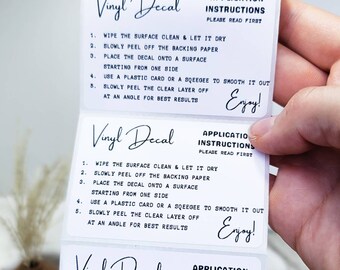 Vinyl Decal APPLICATION
INSTRUCTIONS
PLEASE READ FIRST
1. WIPE THE SURFACE CLEAN & LET IT DRY
2. SLOWLY PEEL OFF THE BACKING PAPER
3. PLACE THE DECAL ONTO A SURFACE
STARTING FROM ONE SIDE
4. USE A PLASTIC CARD OR A SQEEGEE TO SMOOTH IT OUT
5. SLOWLY PEEL THE CLEAR LAYER OFF
AT AN ANGLE FOR BEST RESULTS
Enjoy!
Vinyl Decal APPLICATION
INSTRUCTIONS
PLEASE READ FIRST
1. WIPE THE SURFACE CLEAN & LET IT DRY
2. SLOWLY PEEL OFF THE BACKING PAPER
3. PLACE THE DECAL ONTO A SURFACE
STARTING FROM ONE SIDE
4. USE A PLASTIC CARD OR A SQEEGEE TO SMOOTH IT OUT
5. SLOWLY PEEL THE CLEAR LAYER OFF
AT AN ANGLE FOR BEST RESULTS
Enjoy!
Vinyl Decal APPLICATION